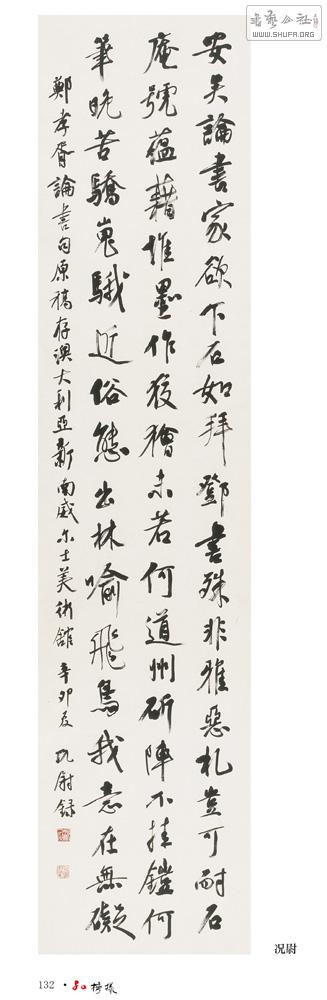 书艺公社
WWW.SHUFA.ORG
安吴論書家欲下石如拜鄧書殊非雅惡札豈可耐石
庵號蘊藉堆墨作狡獪未若何道州斫陣不挂鎧何
筆晚苦驕嵬騀近俗態出林喻飛鳥我意在無礙
鄭孝胥論書句原稿存澳大利亞新南威尔士美術館 辛卯夏 况尉録
况尉
132